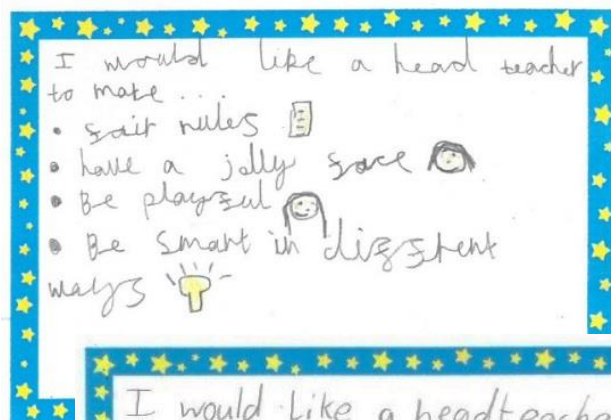 I would like a head teacher
to make...
• fair rules
• have a jolly face
• Be playful
• Be smart in different
ways
I would like a headteache